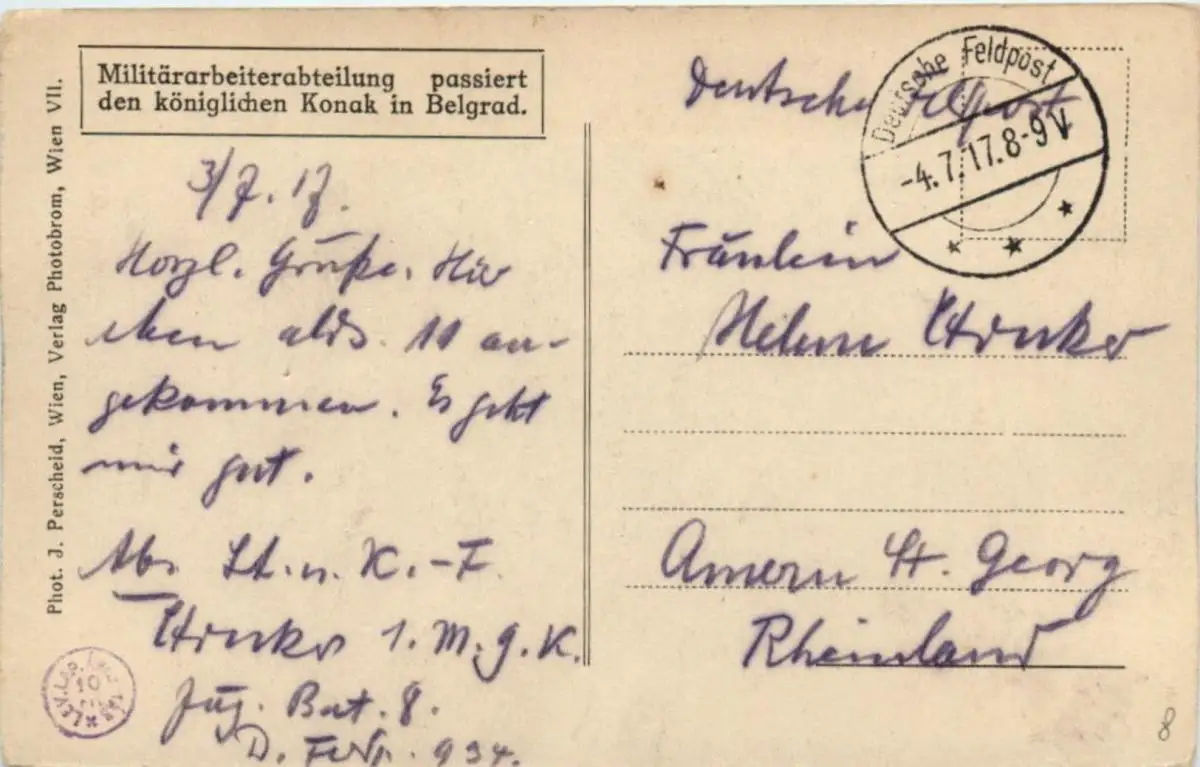 Militärarbeiterabteilung passiert
den königlichen Konak in Belgrad.
Phot. J. Perscheid, Wien, Verlag Photobrom, Wien VII.
3/7. 17.
Herzl. Grüße. Hier
eben abds. 10 an-
gekommen. Es geht
mir gut.
Abs. Lt. u. K.-F.
1. M. G. K.
Jäg. Bat. 8.
D. Feldp. 934.
Deutsche Feldpost
Deutsche Feldpost
-4.7.17.8-9V
Fräulein
Helene
Amern St. Georg
Rheinland
8